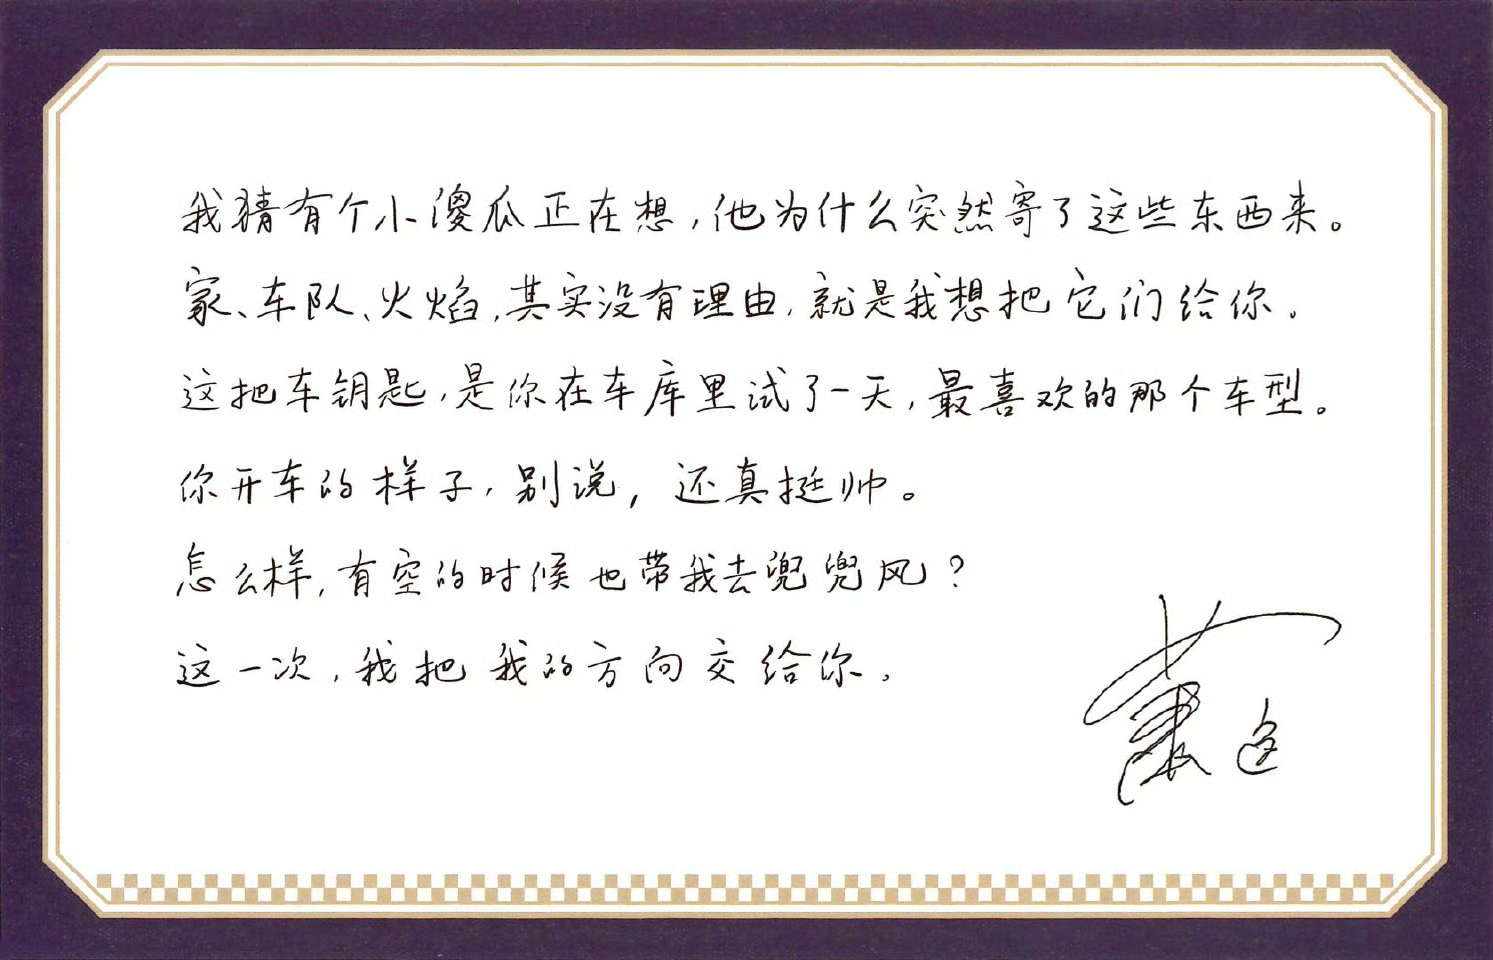 我猜有个小傻瓜正在想，他为什么突然寄了这些东西来。
家、车队、火焰，其实没有理由，就是我想把它们给你。
这把车钥匙，是你在车库里试了一天，最喜欢的那个车型。
你开车的样子，别说，还真挺帅。
怎么样，有空的时候也带我去兜兜风？
这一次，我把我的方向交给你。
萧逸